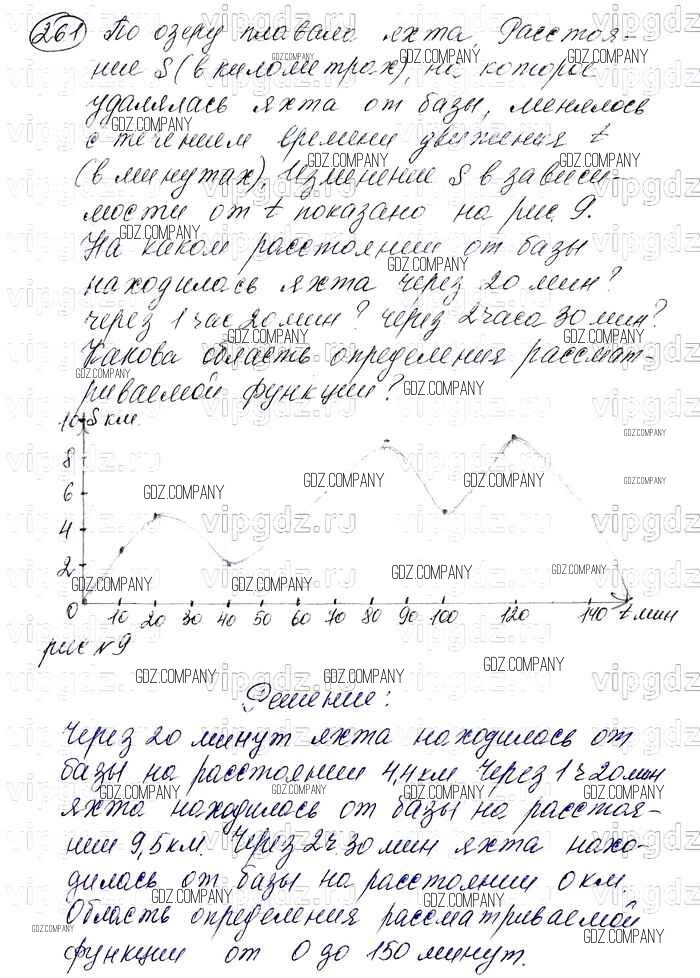 261 По озеру плавала яхта. Расстоя-
ние S (в километрах), на которое
удалялась яхта от базы, менялось
с течением времени движения t
(в минутах). Изменение S в зависи-
мости от t показано на рис. 9.
На каком расстоянии от базы
находилась яхта через 20 мин?
через 1 час 20 мин? через 2 часа 30 мин?
Какова область определения рассмат-
риваемой функции?
10 S км
8
6
4
2
0 10 20 30 40 50 60 70 80 90 100 120 140 t мин
рис №9
Решение:
Через 20 минут яхта находилась от
базы на расстоянии 4,4 км Через 1 ч 20 мин
яхта находилась от базы на расстоя-
нии 9,5 км. Через 2 ч 30 мин яхта нахо-
дилась от базы на расстоянии 0 км.
Область определения рассматриваемой
функции от 0 до 150 минут.